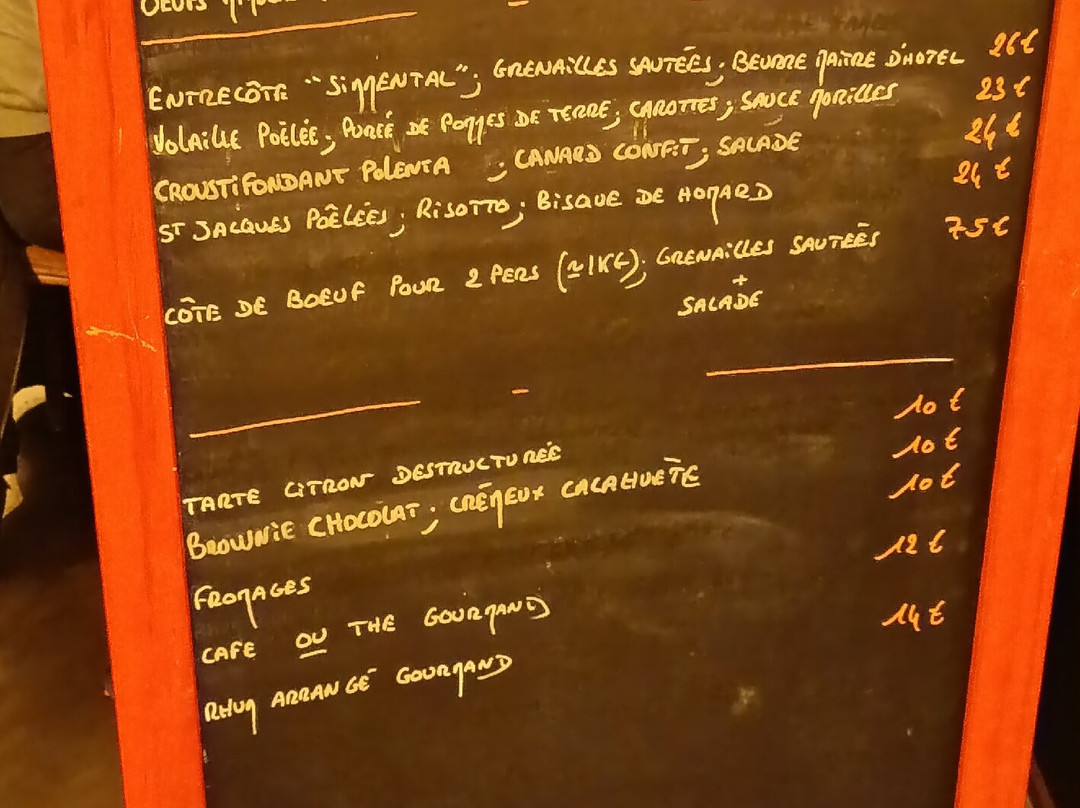 OEUFS
ENTRECÔTE "SIMMENTAL"; GRENAILLES SAUTÉES; BEURRE MAITRE D'HOTEL 26€
VOLAILLE POÊLÉE; PURÉE DE POMMES DE TERRE; CAROTTES; SAUCE MORILLES 23€
CROUSTIFONDANT POLENTA ; CANARD CONFIT; SALADE 24€
ST JACQUES POÊLÉES; RISOTTO; BISQUE DE HOMARD 24€
CÔTE DE BOEUF POUR 2 PERS (≃1KG); GRENAILLES SAUTÉES 75€
+
SALADE
TARTE CITRON DESTRUCTURÉE 10€
BROWNIE CHOCOLAT; CRÉMEUX CACAHUETE 10€
FROMAGES 10€
CAFE OU THE GOURMAND 12€
RHUM ARRANGÉ GOURMAND 14€